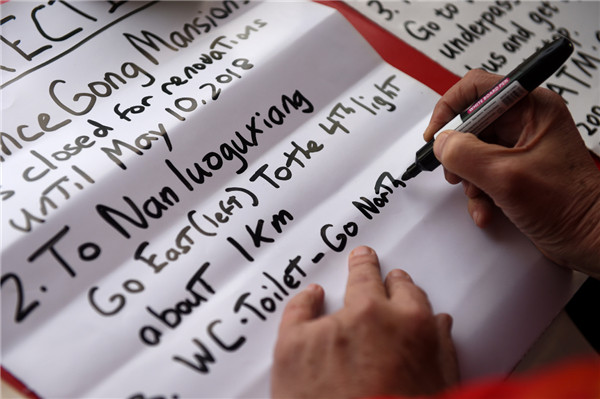 RECTI
ince Gong Mansions
s closed for renovations
until May 10, 2018
2. To Nanluoguxiang
Go East (left) To the 4th light
about 1km
WC-Toilet - Go North
3.
Go to
underpass
bus and get
ATM.
200